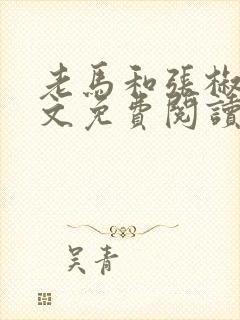 老馬和張椒
文免費閱讀
吴青